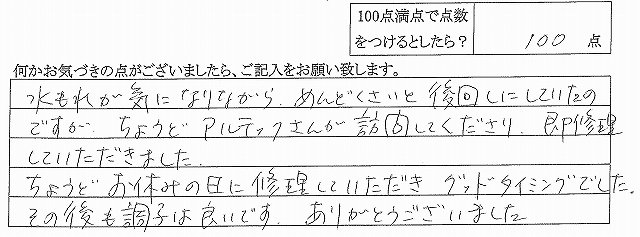 100点満点で点数
をつけるとしたら？ 100 点
何かお気づきの点がございましたら、ご記入をお願い致します。
水もれが気になりながら、めんどくさいと後回しにしていたの
ですが、ちょうどアルテックさんが訪問してくださり、即修理
していただきました。
ちょうどお休みの日に修理していただき グッドタイミングでした。
その後も調子は良いです。ありがとうございました